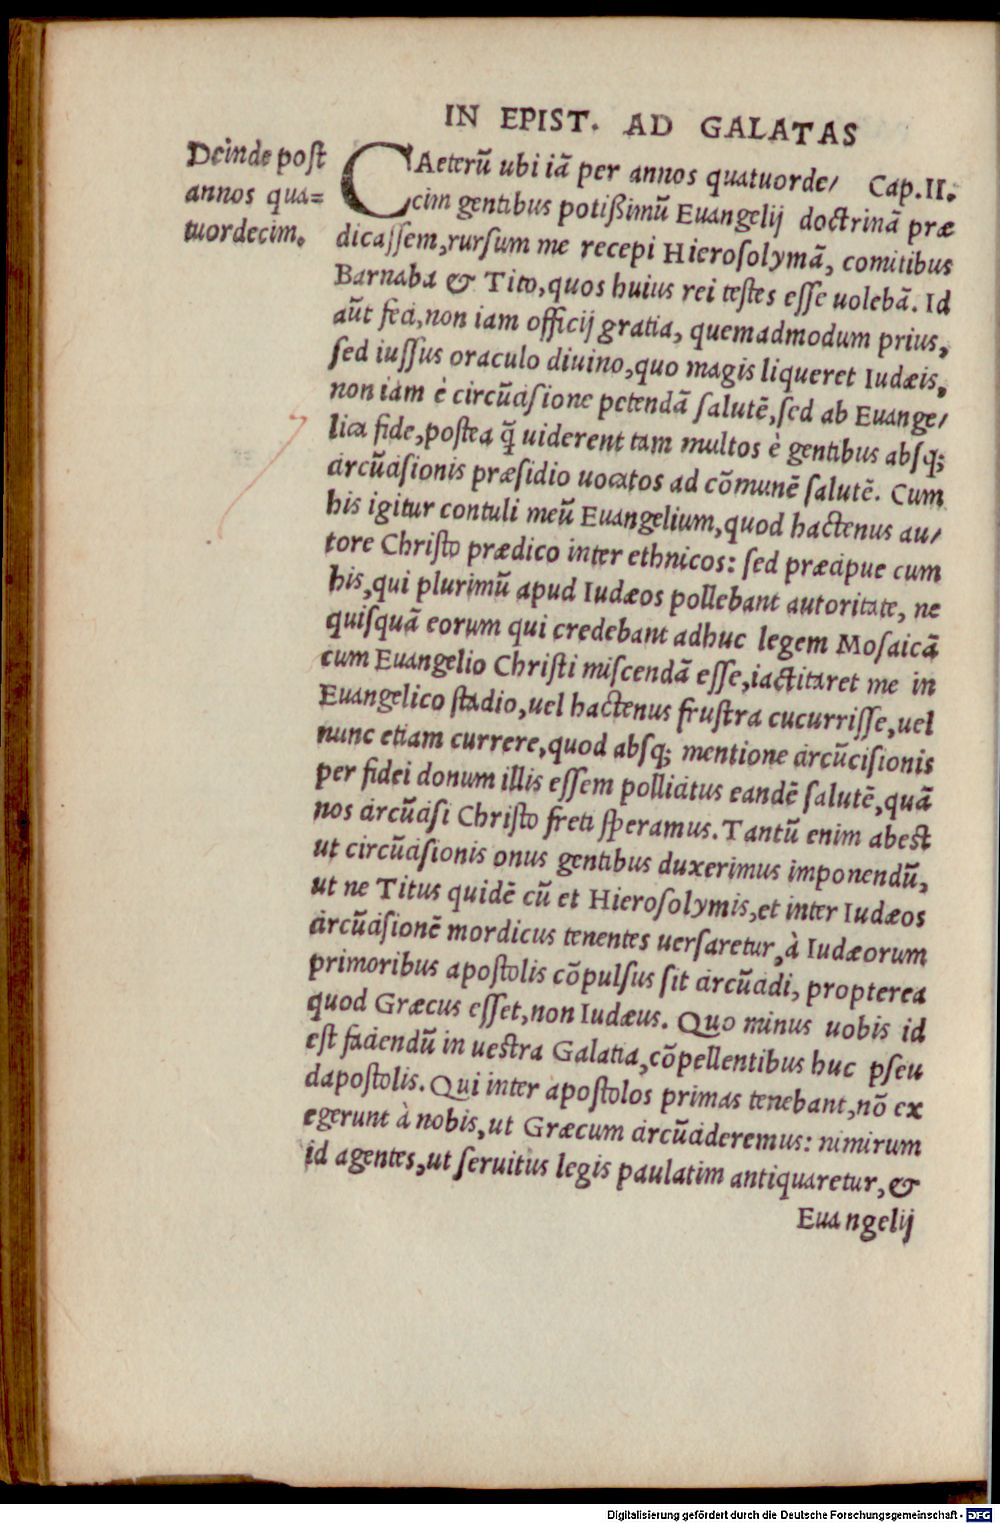 IN EPIST. AD GALATAS
Deinde post
annos qua=
tuordecim.
CAeterũ ubi iã per annos quatuorde/ Cap.II.
cim gentibus potißimũ Euangelij doctrinã præ
dicaſſem,rurſum me recepi Hieroſolymã, comitibus
Barnaba & Tito,quos huius rei teſtes eſſe uolebã. Id
aũt feci,non iam officij gratia, quemadmodum prius,
ſed iuſſus oraculo diuino,quo magis liqueret Iudæis,
non iam è circũciſione petendã ſalutẽ,ſed ab Euange/
lica fide,poſtea q̃ uiderent tam multos è gentibus abſq;
circũciſionis præſidio uocatos ad cõmunẽ ſalutẽ. Cum
his igitur contuli meũ Euangelium,quod hactenus au/
tore Chriſto prædico inter ethnicos: ſed præcipue cum
his,qui plurimũ apud Iudæos pollebant autoritate, ne
quiſquã eorum qui credebant adhuc legem Moſaicã
cum Euangelio Chriſti miſcendã eſſe,iactitaret me in
Euangelico ſtadio,uel hactenus fruſtra cucurriſſe,uel
nunc etiam currere,quod abſq; mentione circũciſionis
per fidei donum illis eſſem pollicitus eandẽ ſalutẽ,quã
nos circũciſi Chriſto freti ſperamus. Tantũ enim abest
ut circũciſionis onus gentibus duxerimus imponendũ,
ut ne Titus quidẽ cũ et Hieroſolymis,et inter Iudæos
circũciſionẽ mordicus tenentes uerſaretur,à Iudæorum
primoribus apoſtolis cõpulſus ſit circũcidi, propterea
quod Græcus eſſet,non Iudæus. Quo minus uobis id
eſt faciendũ in ueſtra Galatia,cõpellentibus huc pſeu
dapoſtolis. Qui inter apoſtolos primas tenebant,nõ ex
egerunt à nobis,ut Græcum circũcideremus: nimirum
id agentes,ut ſeruitus legis paulatim antiquaretur,&
Euangelij
Digitalisierung gefördert durch die Deutsche Forschungsgemeinschaft - DFG